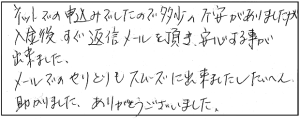 ネットでの申込みでしたので多少の不安がありましたが
入金後、すぐ返信メールを頂き、安心する事が
出来ました。
メールでのやりとりもスムーズに出来ましたし、たいへん
助かりました。ありがとうございました。